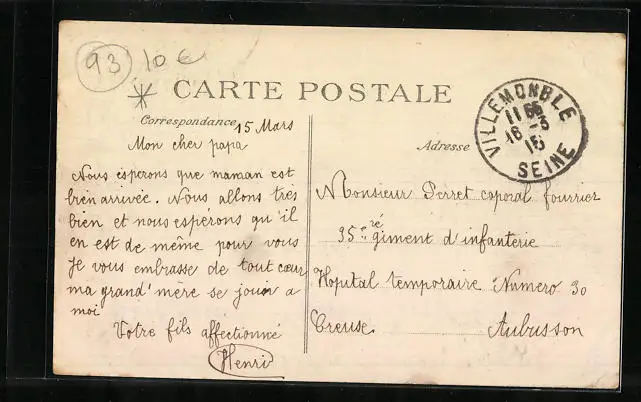 93 10€
CARTE POSTALE
Correspondance
15 Mars
Mon cher papa
Nous esperons que maman est
bien arrivée. Nous allons très
bien et nous esperons qu'il
en est de même pour vous
Je vous embrasse de tout cœur
ma grand'mère se joint a
moi
Votre fils affectionné
Henri
VILLEMONBLE
16-3
15
SEINE
Adresse
Monsieur Perret caporal fourrier
35e régiment d'infanterie
Hopital temporaire Numero 30
Creuse. Aubusson